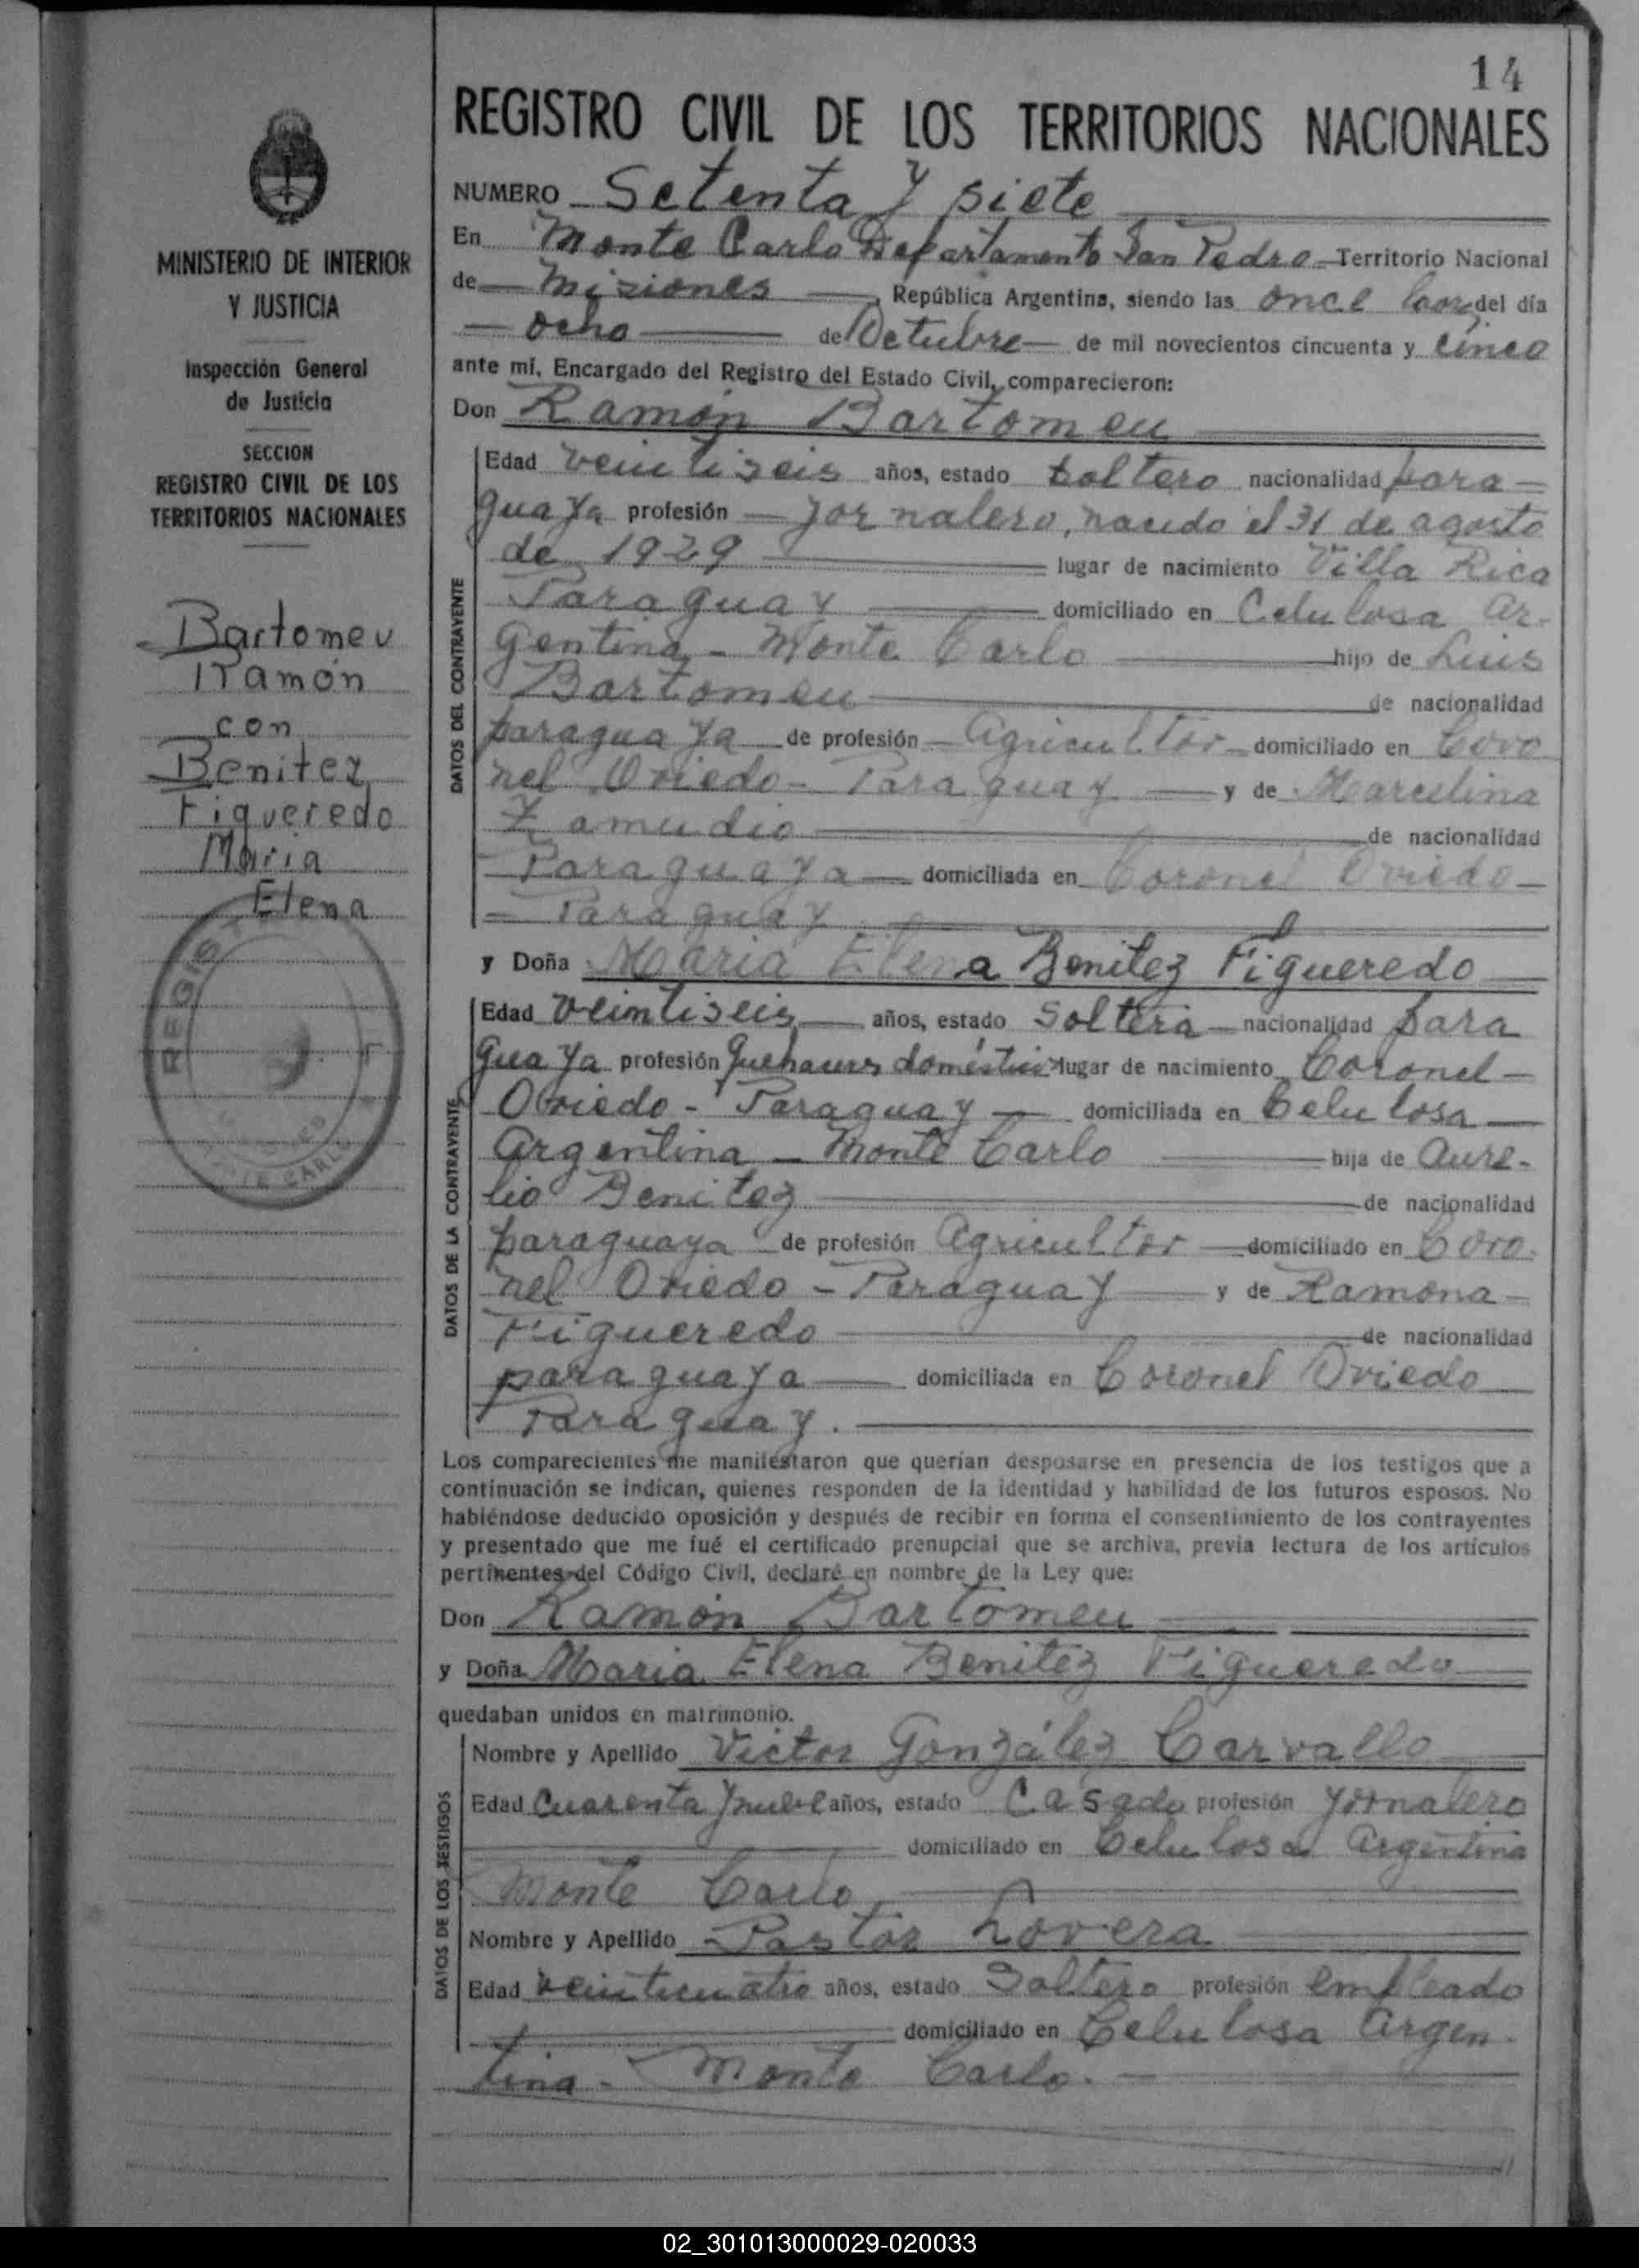 14
REGISTRO CIVIL DE LOS TERRITORIOS NACIONALES
MINISTERIO DE INTERIOR
Y JUSTICIA
Inspección General
de Justicia
SECCION
REGISTRO CIVIL DE LOS
TERRITORIOS NACIONALES
Bartomeu
Ramón
con
Benitez
Figueredo
Maria
Elena
NUMERO Setenta y siete
En Monte Carlo Departamento San Pedro Territorio Nacional
de Misiones, República Argentina, siendo las once horas del día
ocho de Octubre de mil novecientos cincuenta y cinco
ante mí, Encargado del Registro del Estado Civil, comparecieron:
Don Ramón Bartomeu
DATOS DEL CONTRAYENTE
Edad veintiseis años, estado soltero nacionalidad para-
guaya profesión jornalero, nacido el 31 de agosto
de 1929 lugar de nacimiento Villa Rica
Paraguay domiciliado en Celulosa Ar-
gentina - Monte Carlo hijo de Luis
Bartomeu de nacionalidad
paraguaya de profesión Agricultor domiciliado en Coro
nel Oviedo - Paraguay y de Marcelina
Zamudio de nacionalidad
Paraguaya domiciliada en Coronel Oviedo -
Paraguay
y Doña Maria Elena Benitez Figueredo
DATOS DE LA CONTRAYENTE
Edad veintiseis años, estado soltera nacionalidad para
guaya profesión quehaceres domésticos lugar de nacimiento Coronel -
Oviedo - Paraguay domiciliada en Celulosa
Argentina - Monte Carlo hija de Aure-
lio Benitez de nacionalidad
paraguaya de profesión Agricultor domiciliado en Coro-
nel Oviedo - Paraguay y de Ramona
Figueredo de nacionalidad
paraguaya domiciliada en Coronel Oviedo
Paraguay.
Los comparecientes me manifestaron que querían desposarse en presencia de los testigos que a
continuación se indican, quienes responden de la identidad y habilidad de los futuros esposos. No
habiéndose deducido oposición y después de recibir en forma el consentimiento de los contrayentes
y presentado que me fué el certificado prenupcial que se archiva, previa lectura de los artículos
pertinentes del Código Civil, declaré en nombre de la Ley que:
Don Ramón Bartomeu
y Doña Maria Elena Benitez Figueredo
quedaban unidos en matrimonio.
DATOS DE LOS TESTIGOS
Nombre y Apellido Victor González Carvallo
Edad Cuarenta y nueve años, estado Casado profesión jornalero
domiciliado en Celulosa Argentina
Monte Carlo
Nombre y Apellido Pastor Lovera
Edad veinticuatro años, estado Soltero profesión empleado
domiciliado en Celulosa Argen-
tina - Monte Carlo.
02_301013000029-020033